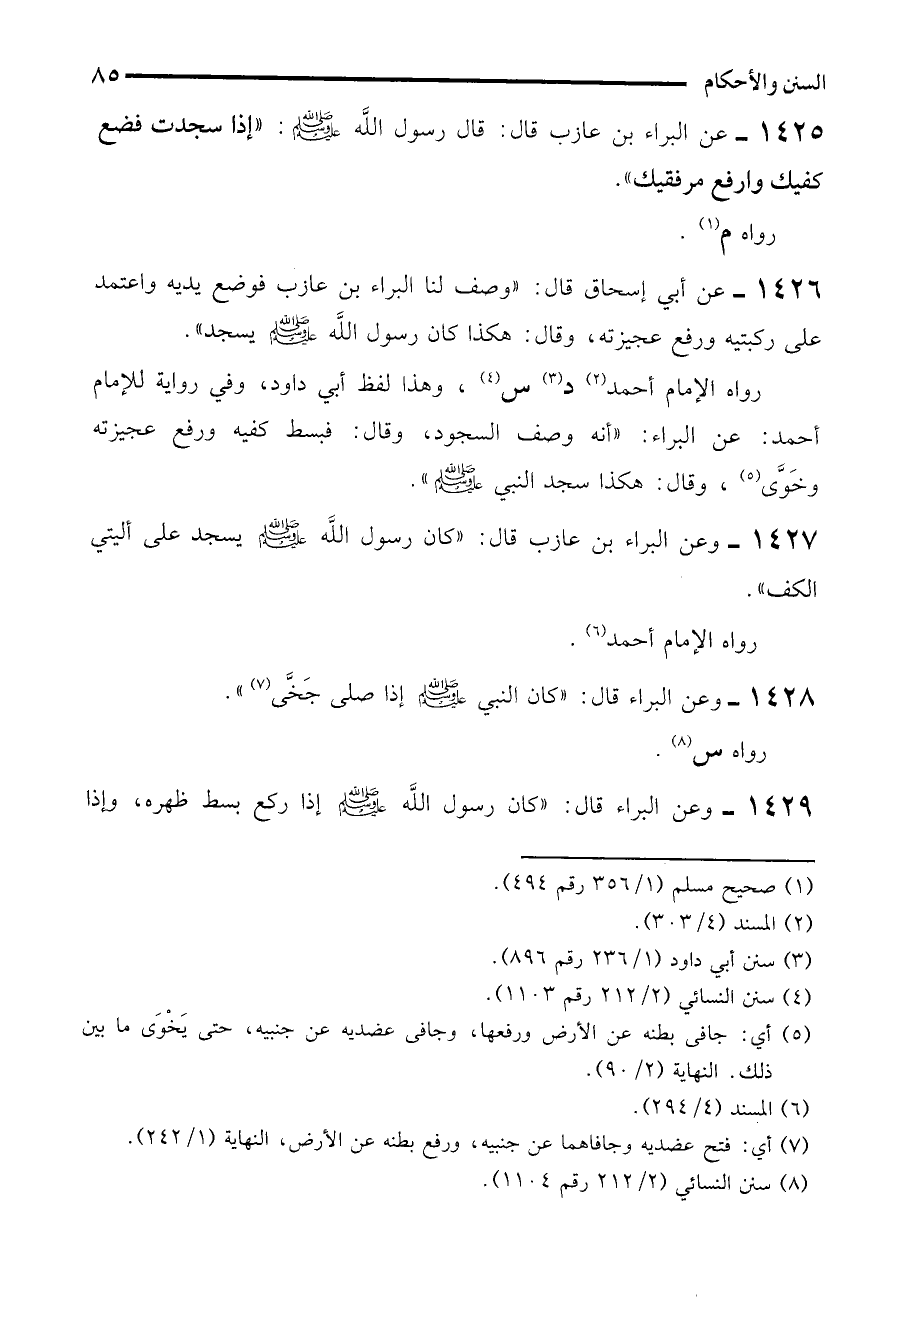 السنن والأحكام ٨٥
١٤٢٥ - عن البراء بن عازب قال: قال رسول اللَّه ﷺ: «إذا سجدت فضع
كفيك وارفع مرفقيك».
رواه م(١) .
١٤٢٦ - عن أبي إسحاق قال: «وصف لنا البراء بن عازب فوضع يديه واعتمد
على ركبتيه ورفع عجيزته، وقال: هكذا كان رسول اللَّه ﷺ يسجد».
رواه الإمام أحمد(٢) د(٣) س(٤) ، وهذا لفظ أبي داود، وفي رواية للإمام
أحمد: عن البراء: «أنه وصف السجود، وقال: فبسط كفيه ورفع عجيزته
وخَوَّى(٥) ، وقال: هكذا سجد النبي ﷺ».
١٤٢٧ - وعن البراء بن عازب قال: «كان رسول اللَّه ﷺ يسجد على أليتي
الكف».
رواه الإمام أحمد(٦) .
١٤٢٨ - وعن البراء قال: «كان النبي ﷺ إذا صلى جَخَّى(٧)».
رواه س(٨) .
١٤٢٩ - وعن البراء قال: «كان رسول اللَّه ﷺ إذا ركع بسط ظهره، وإذا
(١) صحيح مسلم (١/ ٣٥٦ رقم ٤٩٤).
(٢) المسند (٤/ ٣٠٣).
(٣) سنن أبي داود (١/ ٢٣٦ رقم ٨٩٦).
(٤) سنن النسائي (٢/ ٢١٢ رقم ١١٠٣).
(٥) أي: جافى بطنه عن الأرض ورفعها، وجافى عضديه عن جنبيه، حتى يَخْوَى ما بين
ذلك. النهاية (٢/ ٩٠).
(٦) المسند (٤/ ٢٩٤).
(٧) أي: فتح عضديه وجافاهما عن جنبيه، ورفع بطنه عن الأرض، النهاية (١/ ٢٤٢).
(٨) سنن النسائي (٢/ ٢١٢ رقم ١١٠٤).